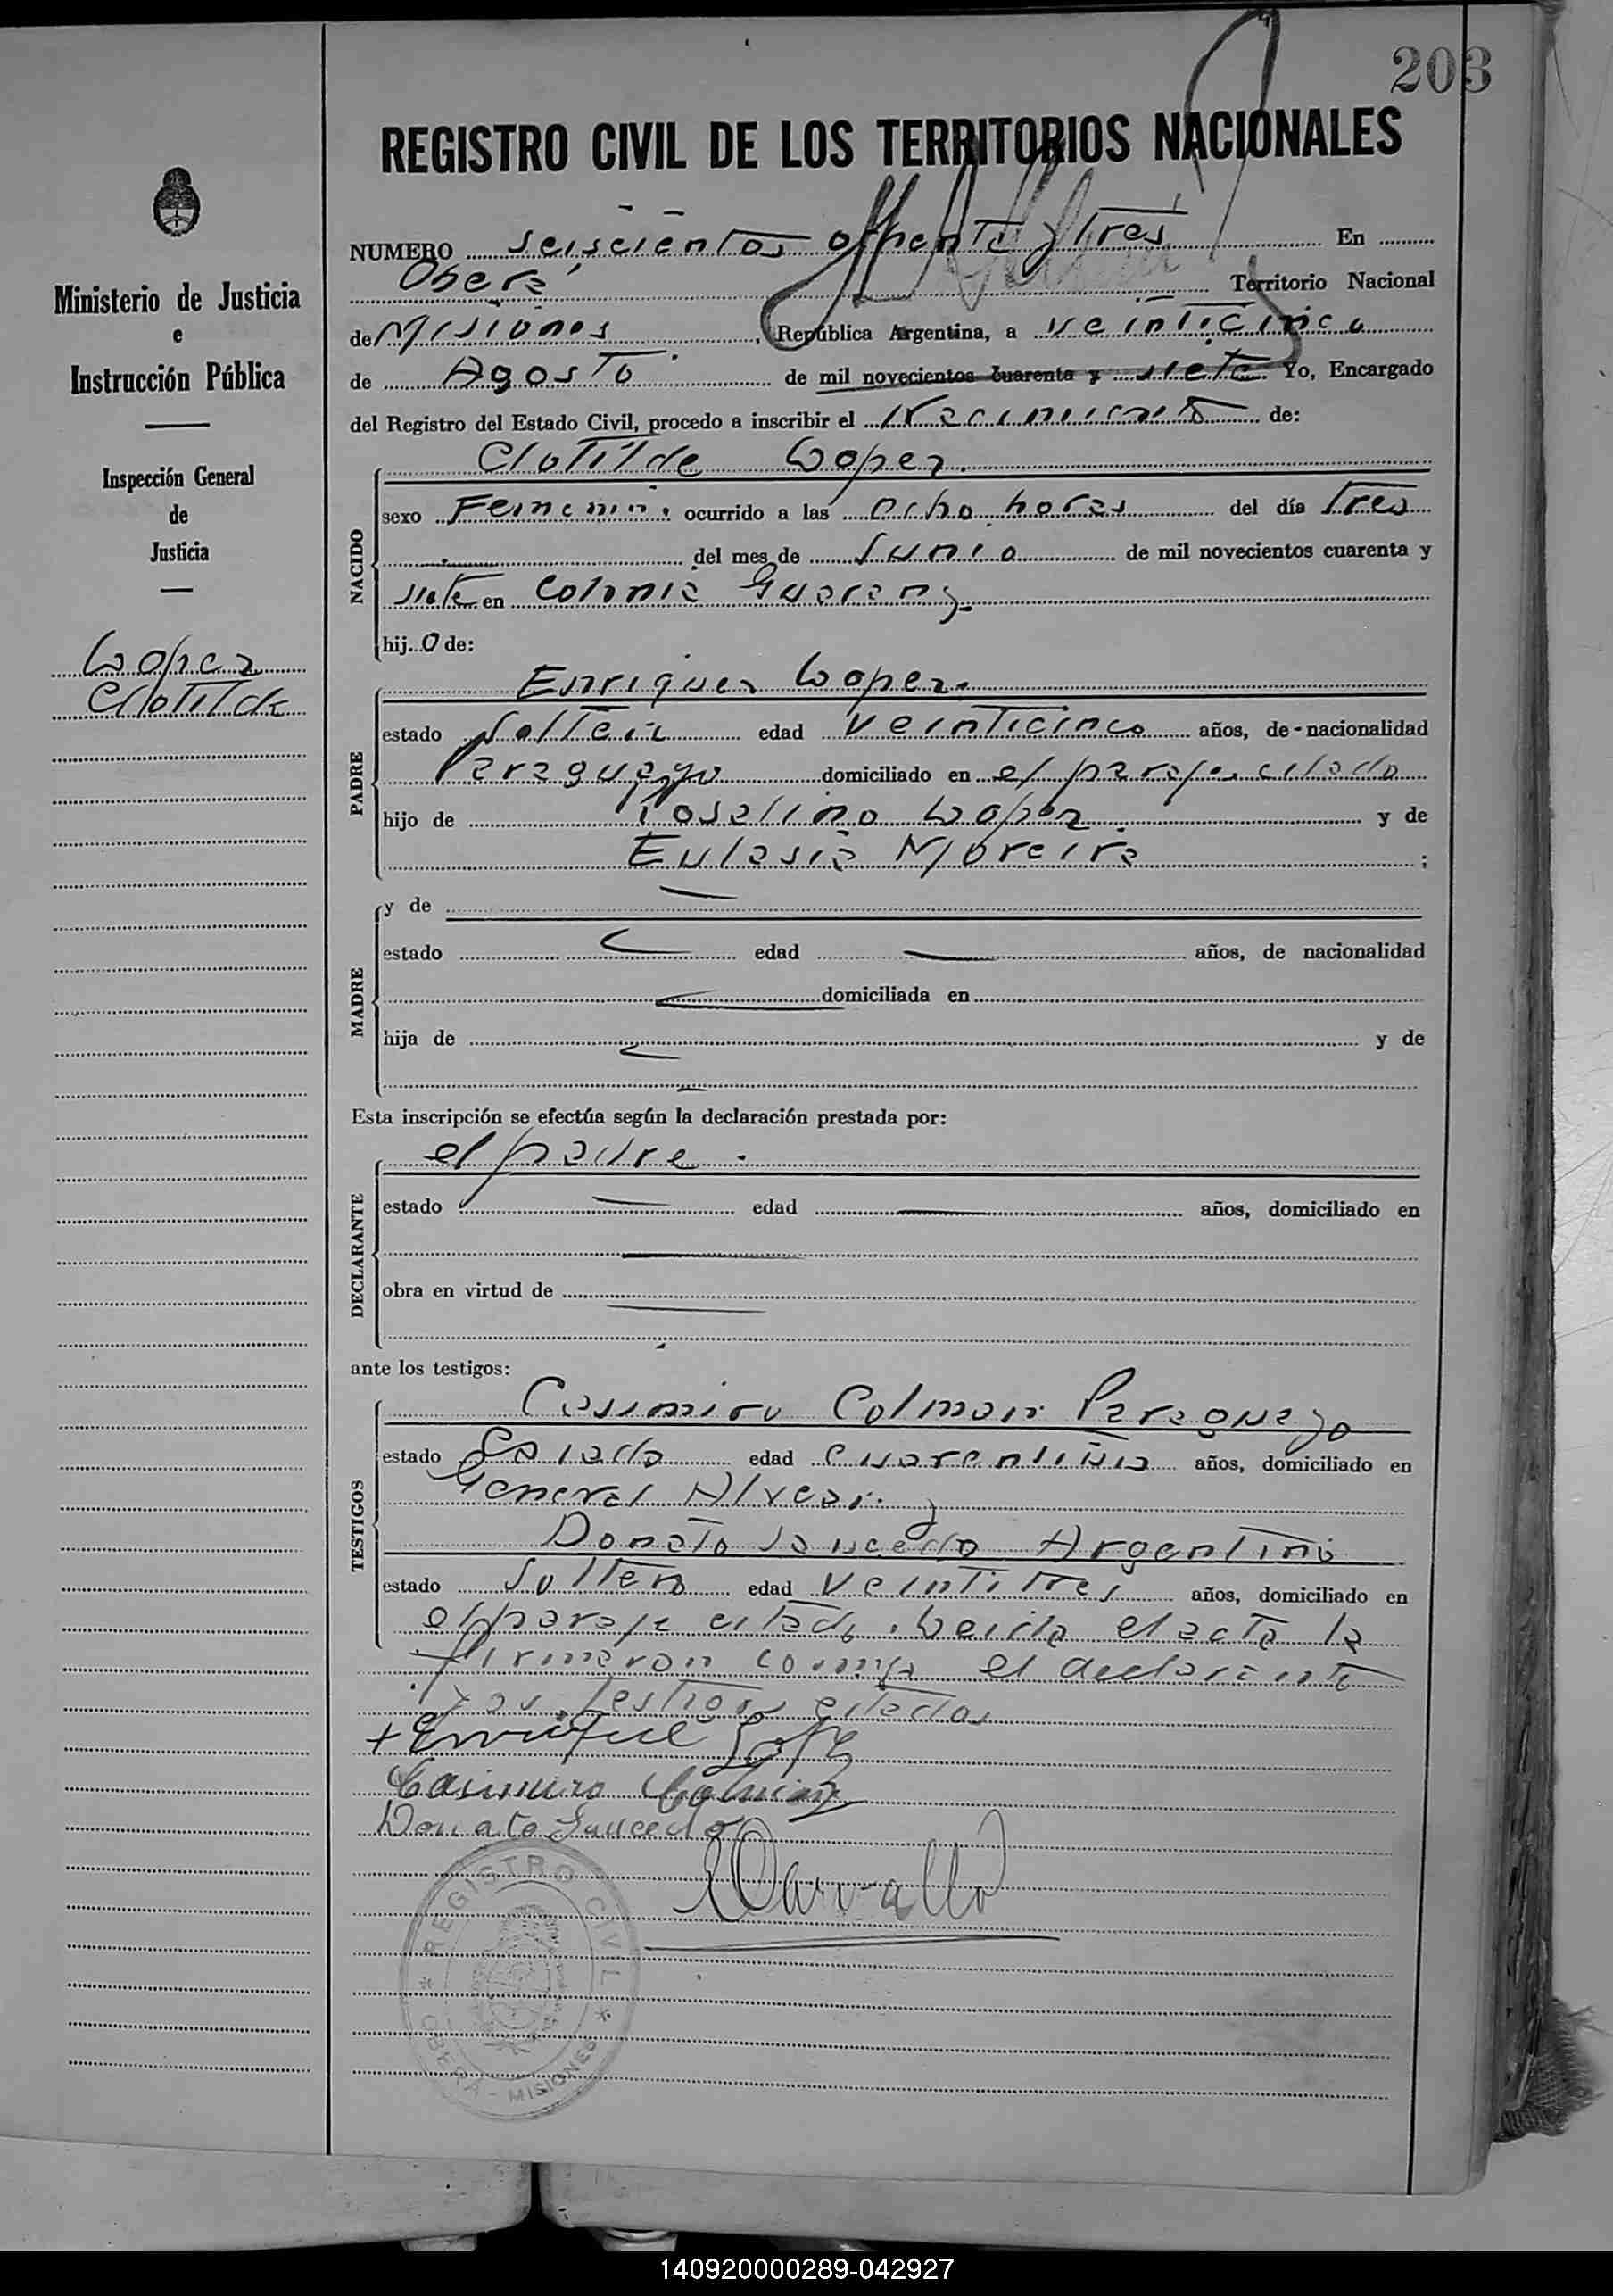 203
REGISTRO CIVIL DE LOS TERRITORIOS NACIONALES
NUMERO seiscientos ochenta y tres En
Oberá Territorio Nacional
de Misiones, República Argentina, a veinticinco
de Agosto de mil novecientos cuarenta y siete Yo, Encargado
del Registro del Estado Civil, procedo a inscribir el Nacimiento de:
Clotilde Lopez
NACIDO
sexo Femenino ocurrido a las ocho horas del día tres
del mes de Junio de mil novecientos cuarenta y
siete en Colonia Guarany
hij o de:
PADRE
Enrique Lopez
estado Soltero edad veinticinco años, de nacionalidad
Paraguayo domiciliado en el paraje citado
hijo de Lopez y de
Moreira ;
MADRE
y de
estado edad años, de nacionalidad
domiciliada en
hija de y de
Esta inscripción se efectúa según la declaración prestada por:
DECLARANTE
el padre.
estado edad años, domiciliado en
obra en virtud de
ante los testigos:
TESTIGOS
Casimiro Colman Paraguayo
estado Casado edad años, domiciliado en
General Alvear y
Donato Saucedo Argentino
estado Soltero edad veintitres años, domiciliado en
el paraje citado. Leida el acta la
firmaron el declarante
y los testigos citados
+ Enrique Lopez
Casimiro Colman
Donato Saucedo
Carvallo
REGISTRO CIVIL
OBERA - MISIONES
Ministerio de Justicia
e
Instrucción Pública
Inspección General
de
Justicia
Lopez
Clotilde
140920000289-042927